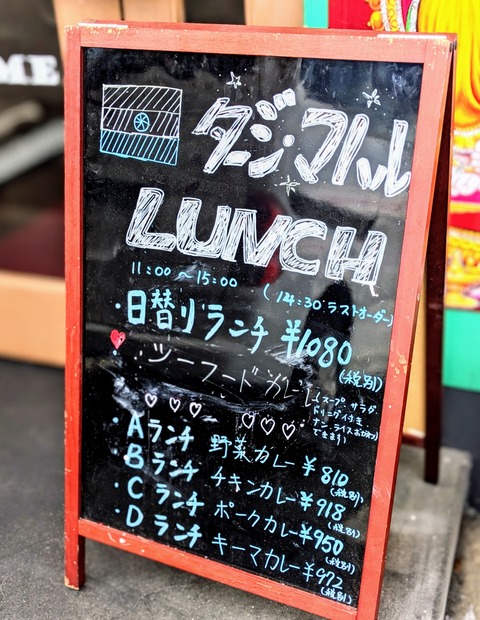 ME
タージマハル
LUNCH
11:00 〜 15:00
(14:30 ラストオーダー)
・日替りランチ ¥1080
(税別)
シーフードカレー
(スープ、サラダ、
ドリンク付き
ナン、ライスおかわり
できます)
・Aランチ 野菜カレー ¥810
(税別)
・Bランチ チキンカレー ¥918
(税別)
・Cランチ ポークカレー ¥950
(税別)
・Dランチ キーマカレー ¥972
(税別)